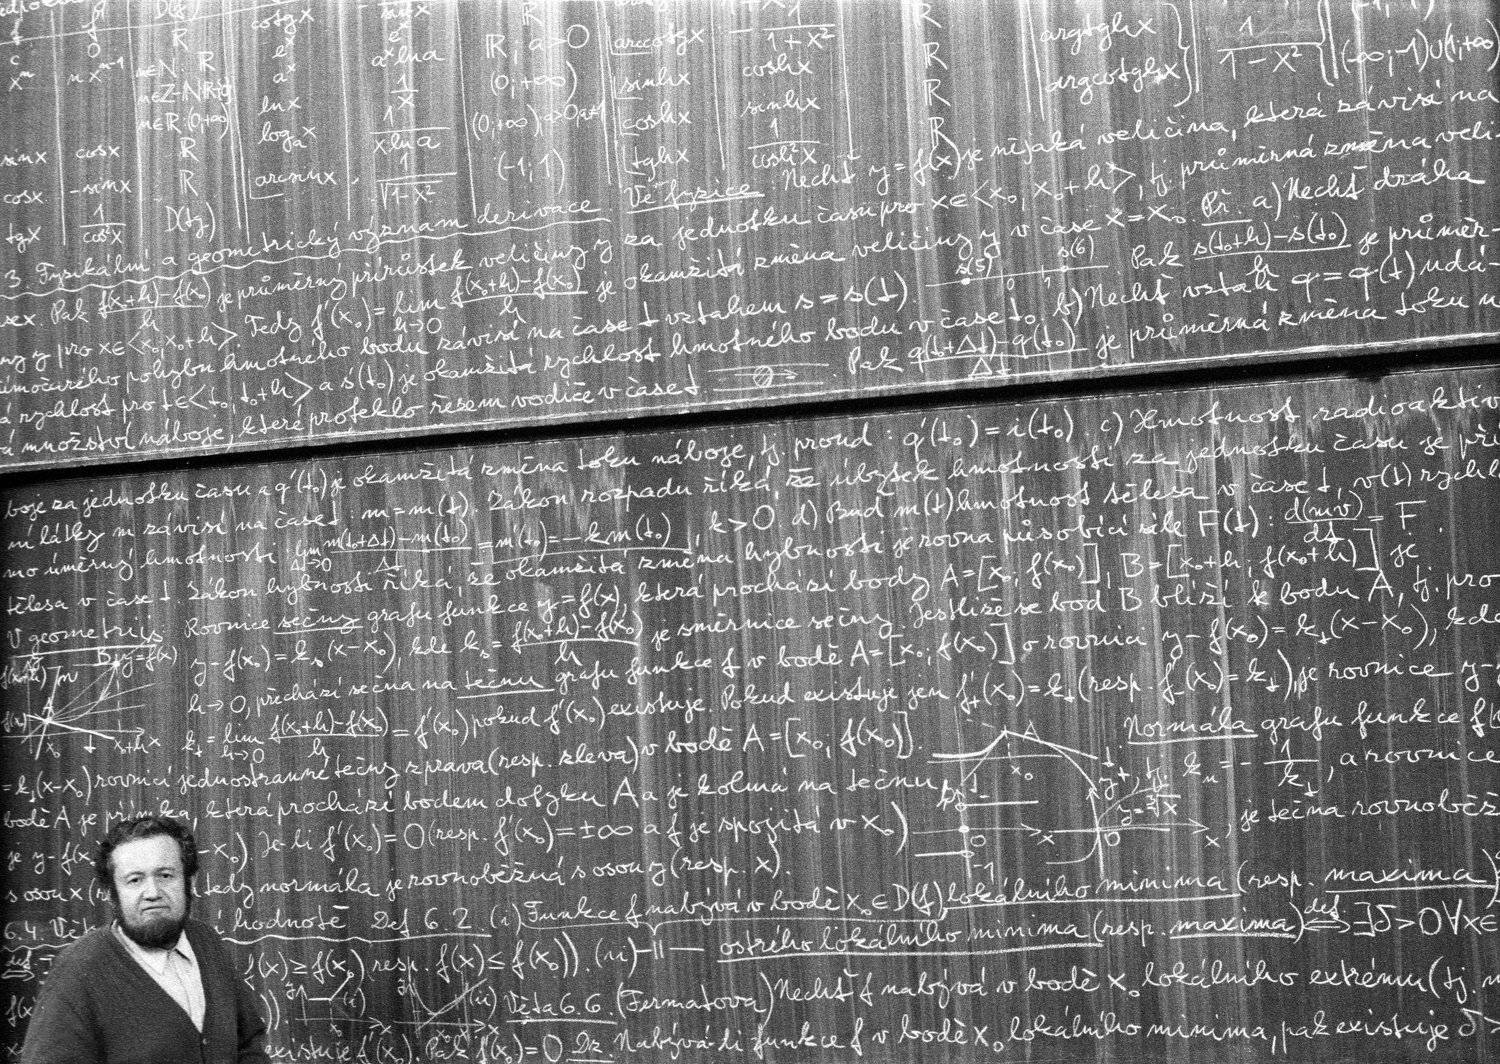 f f' D(f) cotgx sinx R
c 0 R e^x e^x R arccotgx - 1/(1+x²) R argtghx 1/(1-x²) (-1; 1)
x^m m x^(m-1) m∈N: R a^x a^x lna R; a>0 sinhx coshx R argcotghx (-∞; -1)∪(1; +∞)
m∈Z-N: lnx 1/x (0; +∞) coshx sinhx R
m∈R: (0; +∞) log_a x 1/(x lna) (0; +∞), tghx 1/cosh²x R
sinx cosx R arcsinx 1/√(1-x²) (-1; 1)
cosx -sinx R
tgx 1/cos²x D(tg)
Ve fyzice: Nechť y=f(x) je nějaká veličina, která závisí na
3. Fyzikální a geometrický význam derivace
sex. Pak (f(x₀+h)-f(x₀))/h je průměrný přírůstek veličiny y za jednotku času pro x∈<x₀, x₀+h>, tj. průměrná změna veli-
ny y pro x∈<x₀, x₀+h>. Tedy f'(x₀)=lim h→0 (f(x₀+h)-f(x₀))/h je okamžitá změna veličiny y v čase x=x₀. Př. a) Nechť dráha
přímočarého pohybu hmotného bodu závisí na čase t vztahem s=s(t). s(5) 0 1 s(6). Pak (s(t₀+h)-s(t₀))/h je průměr-
ná rychlost pro t∈<t₀, t₀+h> a s'(t₀) je okamžitá rychlost hmotného bodu v čase t₀. b) Nechť vztah q=q(t) udá-
vá množství náboje, které proteklo řezem vodiče v čase t. Pak (q(t₀+Δt)-q(t₀))/Δt je průměrná změna toku ná-
boje za jednotku času a q'(t₀) je okamžitá změna toku náboje, tj. proud: q'(t₀)=i(t₀). c) Hmotnost radioaktiv-
ní látky m závisí na čase t: m=m(t). Zákon rozpadu říká, že úbytek hmotnosti za jednotku času je pří-
mo úměrný hmotnosti: lim Δt→0 (m(t₀+Δt)-m(t₀))/Δt = m'(t₀) = -k m(t₀), k>0. d) Buď m(t) hmotnost tělesa v čase t, v(t) rychl
tělesa v čase t. Zákon hybnosti říká, že okamžitá změna hybnosti je rovna působící síle F(t): d(mv)/dt = F.
V geometrii: Rovnice sečny grafu funkce y=f(x), která prochází body A=[x₀; f(x₀)], B=[x₀+h; f(x₀+h)] je
f(x₀+h) m B y=f(x) y-f(x₀)=k_s(x-x₀), kde k_s=(f(x₀+h)-f(x₀))/h je směrnice sečny. Jestliže se bod B blíží k bodu A, tj. pro
f(x₀) A h→0, přechází sečna na tečnu grafu funkce f v bodě A=[x₀; f(x₀)] o rovnici y-f(x₀)=k_t(x-x₀), kde
x₀ x₀+h x k_t=lim h→0 (f(x₀+h)-f(x₀))/h = f'(x₀) pokud f'(x₀) existuje. Pokud existuje jen f'₊(x₀)=k_t (resp. f'₋(x₀)=k_t), je rovnice y-
=k_t(x-x₀) rovnicí jednostranné tečny zprava (resp. zleva) v bodě A=[x₀; f(x₀)]. A x₀ Normála grafu funkce f
bodě A je přímka, která prochází bodem dotyku A a je kolmá na tečnu t, tj. k_n = -1/k_t, a rovnice
je y-f(x₀) -x₀). Je-li f'(x₀)=0 (resp. f'(x₀)=±∞ a f je spojitá v x₀) 0 x y=∛x 0 x, je tečna rovnoběž
s osou x (re tedy normála je rovnoběžná s osou y (resp. x). -1
6.4. Vět í hodnotě Def 6.2. (i) Funkce f nabývá v bodě x₀∈D(f) lokálního minima (resp. maxima)
def f(x)≥f(x₀) resp. f(x)≤f(x₀)). (ii) -II- ostrého lokálního minima (resp. maxima) ⟺def ∃δ>0∀x∈
f(x )). (i) x₀ x (ii) x Věta 6.6. (Fermatova) Nechť f nabývá v bodě x₀ lokálního extrému (tj.
existuje f'(x₀). Pak f'(x₀)=0. Dz. Nabývá-li funkce f v bodě x₀ lokálního minima, pak existuje δ>